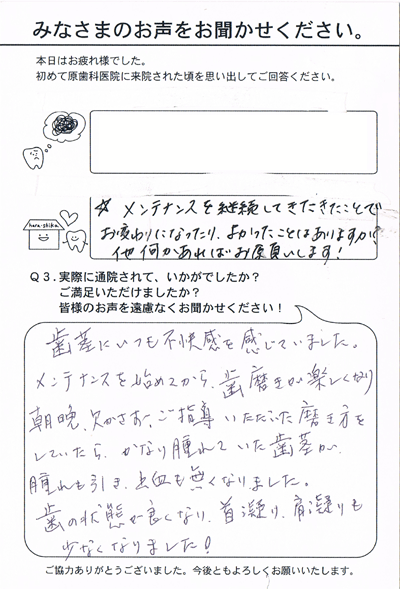 みなさまのお声をお聞かせください。
本日はお疲れ様でした。
初めて原歯科医院に来院された頃を思い出してご回答ください。
hara-shika
☆ メンテナンスを継続してきたきたことで
お変わりになったり、よかったことはありますか?
他何かあればお願いします!
Q3.実際に通院されて、いかがでしたか?
ご満足いただけましたか?
皆様のお声を遠慮なくお聞かせください!
歯茎にいつも不快感を感じていました。
メンテナンスを始めてから、歯磨きが楽しくなり
朝晩、欠かさず、ご指導いただいた磨き方を
していたら、かなり腫れていた歯茎が、
腫れも引き、出血も無くなりました。
歯の状態が良くなり、首凝り、肩凝りも
少なくなりました!
ご協力ありがとうございました。今後ともよろしくお願いいたします。